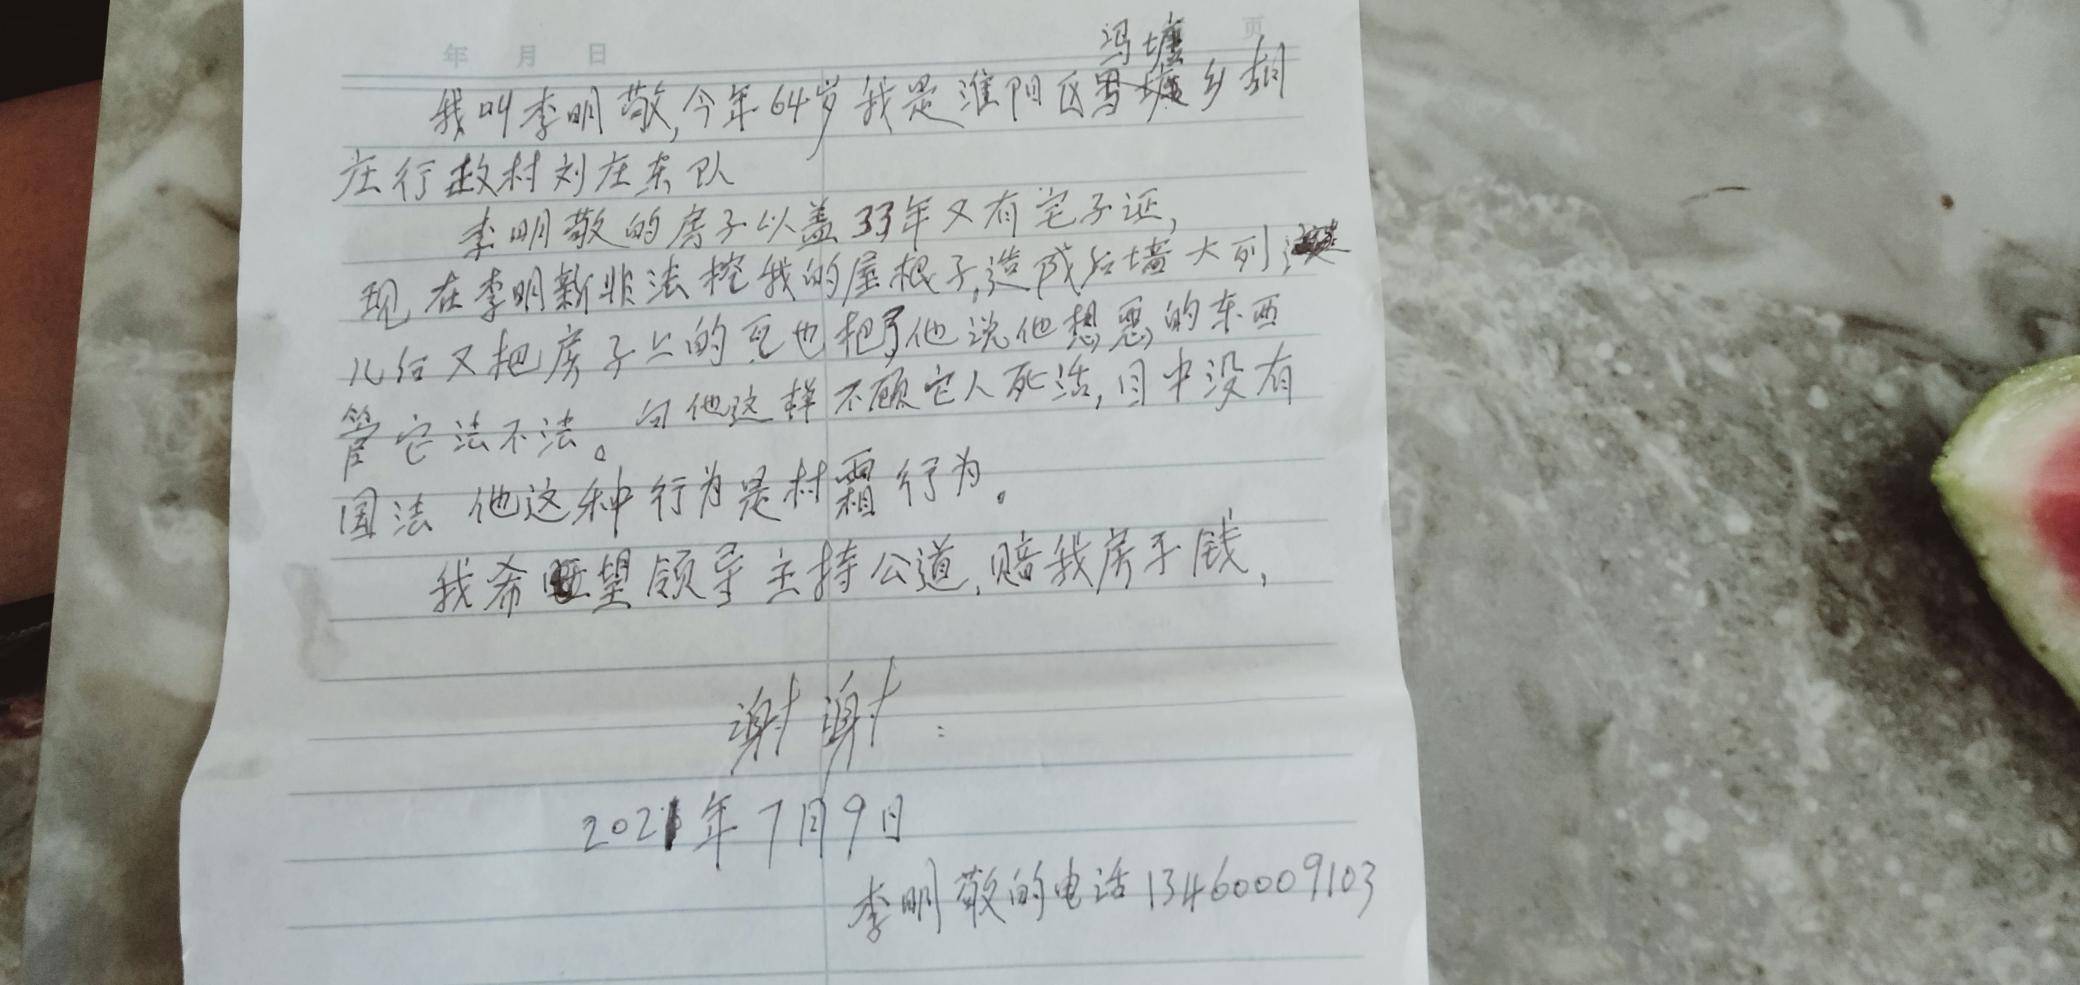 年 月 日 页
冯塘
我叫李明敬,今年64岁我是淮阳区冯塘乡胡
庄行政村刘庄东队
李明敬的房子以盖33年又有宅子证,
现在李明新非法挖我的屋根子,造成后墙大列
儿后又把房子上的瓦也把了他说他想要的东西
管它法不法。向他这样不顾它人死活,目中没有
国法 他这种行为是村霜行为。
我希望领导主持公道,赔我房子钱,
谢谢:
2021年7月9日
李明敬的电话13460009103